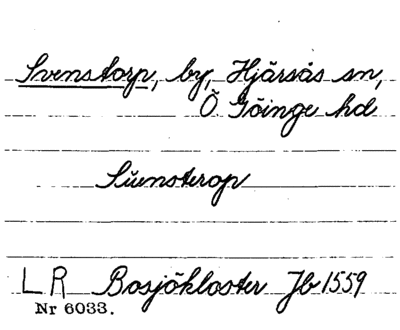 Svenstorp, by, Hjärsås sn,
Ö Göinge hd
Suensterop
L R Bosjökloster Jb 1559
Nr 6033.